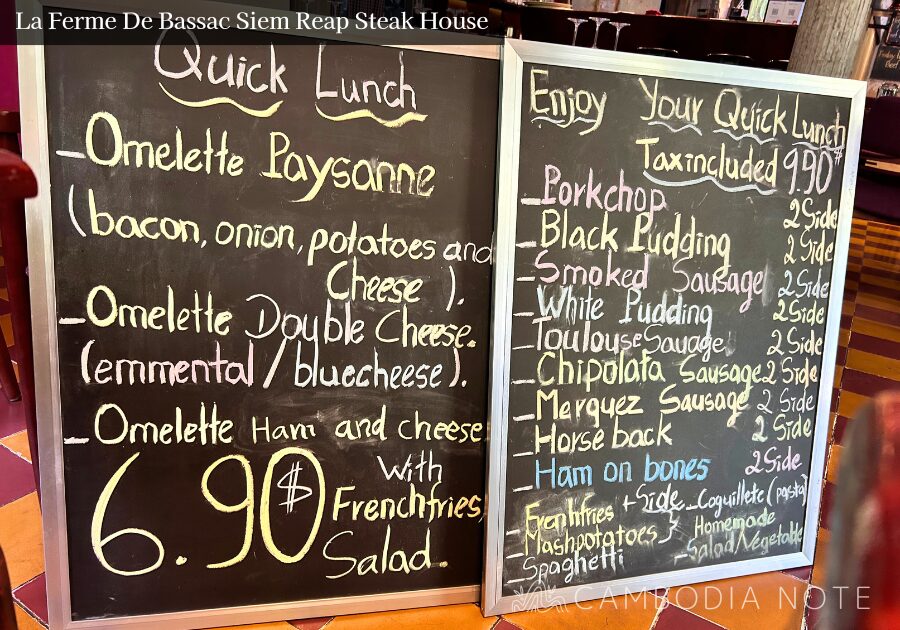 La Ferme De Bassac Siem Reap Steak House
Quick Lunch
_Omelette Paysanne
(bacon, onion, potatoes and
Cheese).
_Omelette Double Cheese.
(emmental / bluecheese).
_Omelette Ham and cheese
6.90$ With
Frenchfries,
Salad.
Enjoy Your Quick Lunch
Tax included 9.90$
_Porkchop 2 Side
_Black Pudding 2 Side
_Smoked Sausage 2 Side
_White Pudding 2 Side
_Toulouse Sauage 2 Side
_Chipolata Sausage 2 Side
_Merquez Sausage 2 Side
_Horse back 2 Side
_Ham on bones 2 Side
_Frenhfries + Side _Coquillete (pasta)
_Mashpotatoes } Homemade
_Spaghetti _Salad/Vegetable
CAMBODIA NOTE